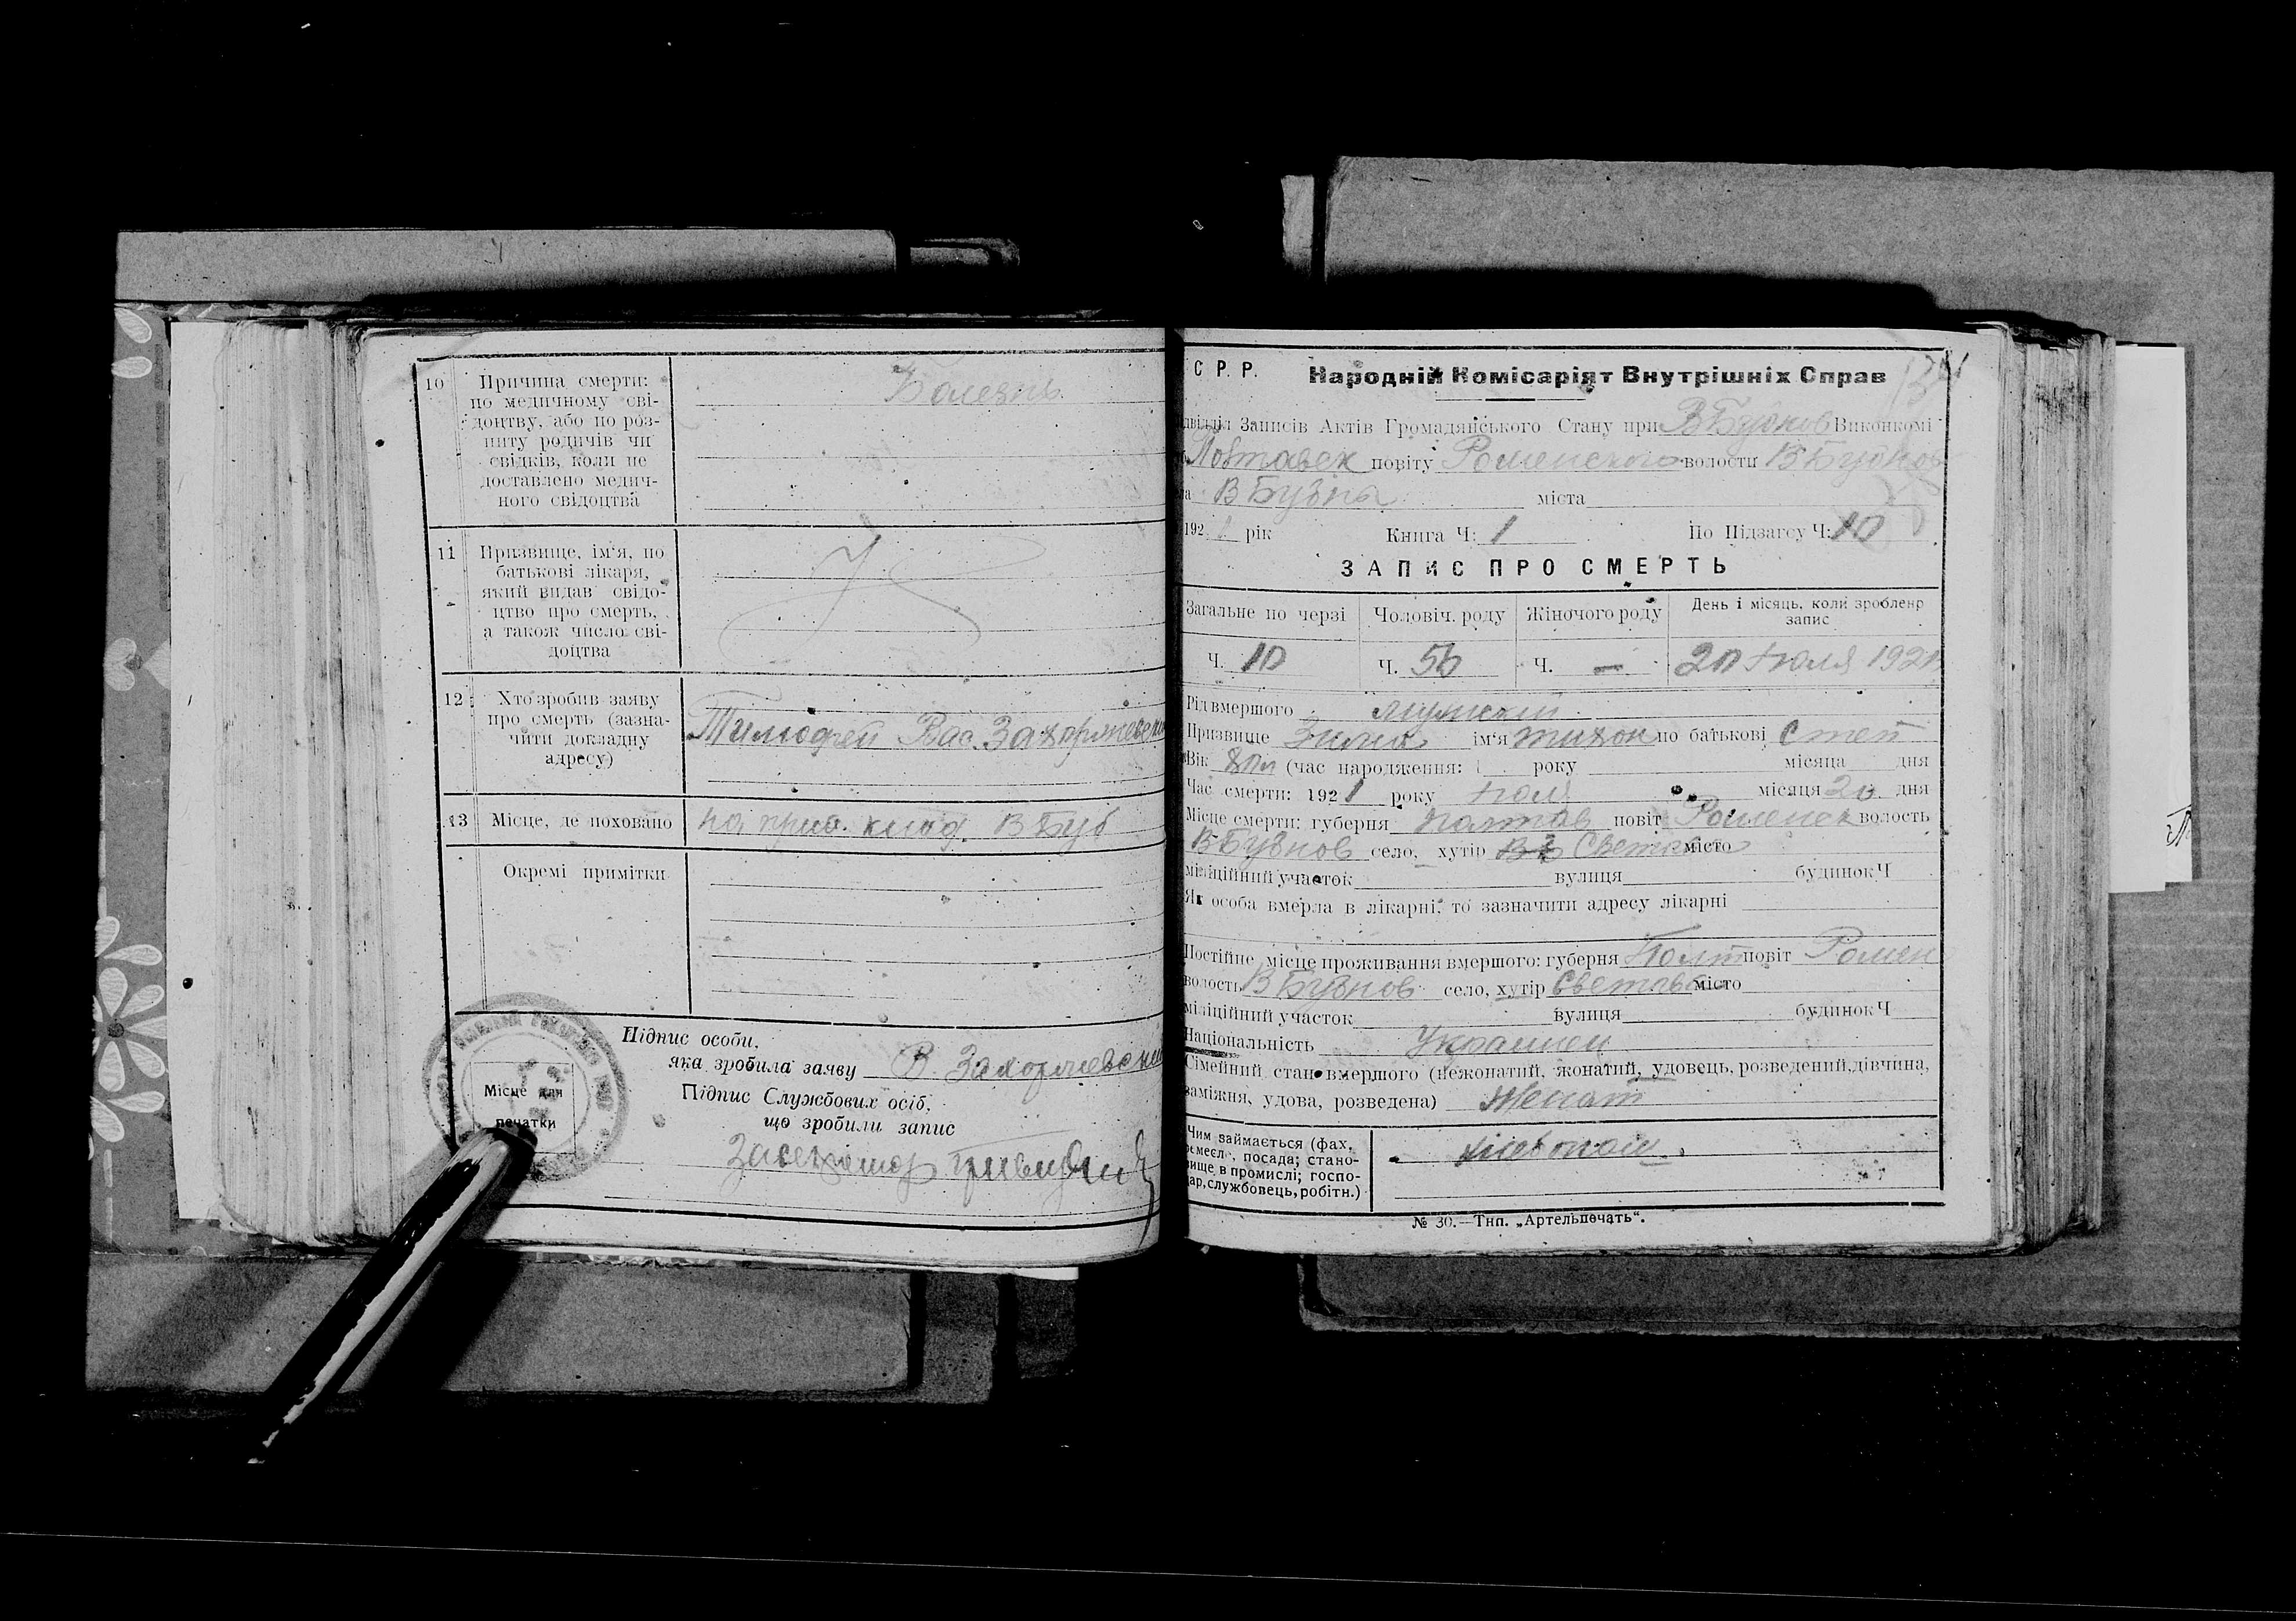 10 Причина смерти:
по медичному сві-
доцтву, або по роз-
питу родичів чи
свідків, коли не
доставлено медич-
ного свідоцтва
Болезнь
11 Призвище, ім'я, по
батькові лікаря,
який видав свідо-
цтво про смерть,
а також число сві-
доцтва
12 Хто зробив заяву
про смерть (зазна-
чити докладну
адресу)
Тимофей Вас.
13 Місце, де поховано
на прих. клад. В Буб
Окремі примітки
Місце для
печатки
Підпис особи,
яка зробила заяву В.
Підпис Службових осіб,
що зробили запис
С. Р. Р. Народній Комісаріят Внутрішніх Справ
Записів Актів Громадянського Стану при В Бубнов Виконкомі
повіту Роменского волости В Бубнов
В Бубны міста
192 рік Книга Ч: 1 По Підзагсу Ч: 10
ЗАПИС ПРО СМЕРТЬ
Загальне по черзі Чоловіч. роду Жіночого роду День і місяць, коли зроблено
запис
Ч. 10 Ч. Ч. — 20 Июля 1921
Рід вмершого мужской
Призвище ім'я Тихон по батькові Степ
Вік (час народження: 1 року місяца дня
Час смерти: 1921 року Июля місяця 20 дня
Місце смерти: губерня Полтав повіт Роменск волость
В Бубнов село, хутір місто
міліційний участок вулиця будинок Ч
Як особа вмерла в лікарні, то зазначити адресу лікарні
Постійне місце проживання вмершого: губерня Полт повіт Ромен
волость В Бубнов село, хутір місто
міліційний участок вулиця будинок Ч
Національність Украинец
Сімейний стан вмершого (нежонатий, жонатий, удовець, розведений, дівчина,
заміжня, удова, розведена) Женат
Чим займається (фах,
ремесло, посада; стано-
вище в промислі; госпо-
дар, службовець, робітн.)
№ 30.—Тип. „Артельпечать“.